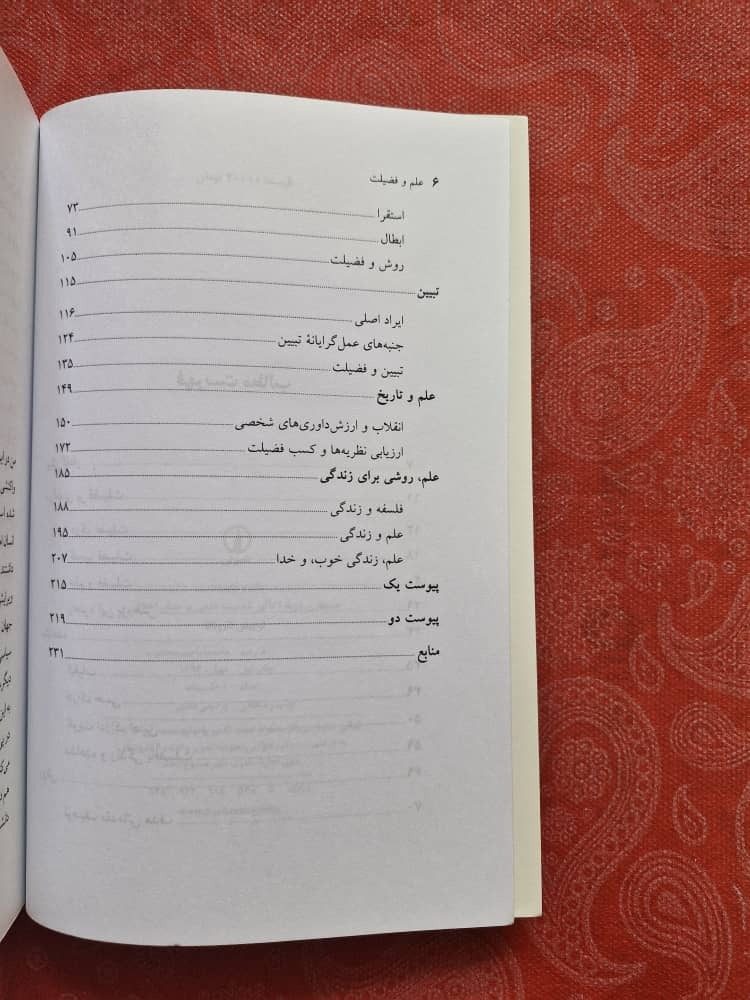 ۶ علم و فضیلت
استقرا ۷۳
ابطال ۹۱
روش و فضیلت ۱۰۵
تبیین ۱۱۵
ایراد اصلی ۱۱۶
جنبه‌های عمل‌گرایانهٔ تبیین ۱۲۴
تبیین و فضیلت ۱۳۵
علم و تاریخ ۱۴۹
انقلاب و ارزش‌داوری‌های شخصی ۱۵۰
ارزیابی نظریه‌ها و کسب فضیلت ۱۷۳
علم، روشی برای زندگی ۱۸۵
فلسفه و زندگی ۱۸۸
علم و زندگی ۱۹۵
علم، زندگی خوب، و خدا ۲۰۷
پیوست یک ۲۱۵
پیوست دو ۲۱۹
منابع ۲۳۱